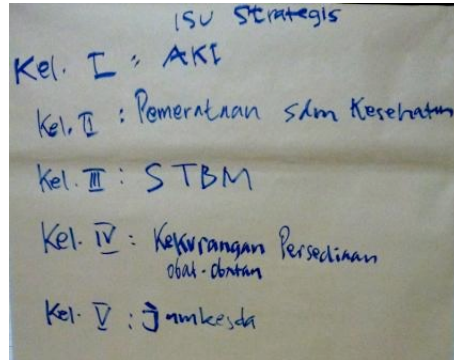 ISU Strategis
Kel. I : AKI
Kel. II : Pemerataan sdm Kesehatan
Kel. III : STBM
Kel. IV : Kekurangan Persediaan
obat-obatan
Kel. V : Jamkesda